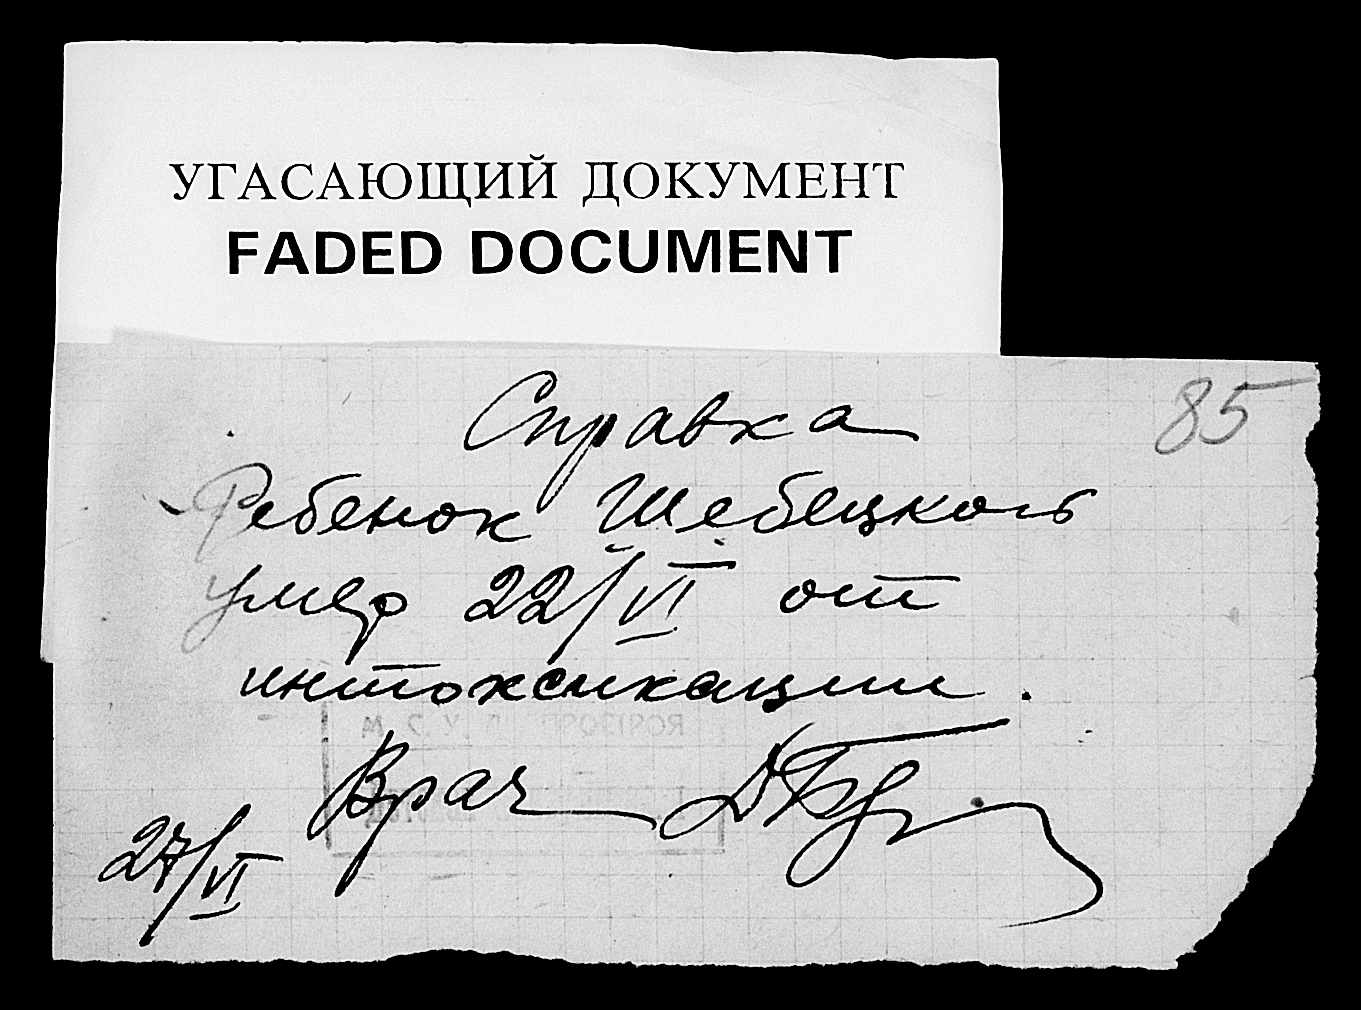 УГАСАЮЩИЙ ДОКУМЕНТ
FADED DOCUMENT
85
Справка
Ребенок Шебецкого
умер 22/VI от
интоксикации.
Врач
27/VI